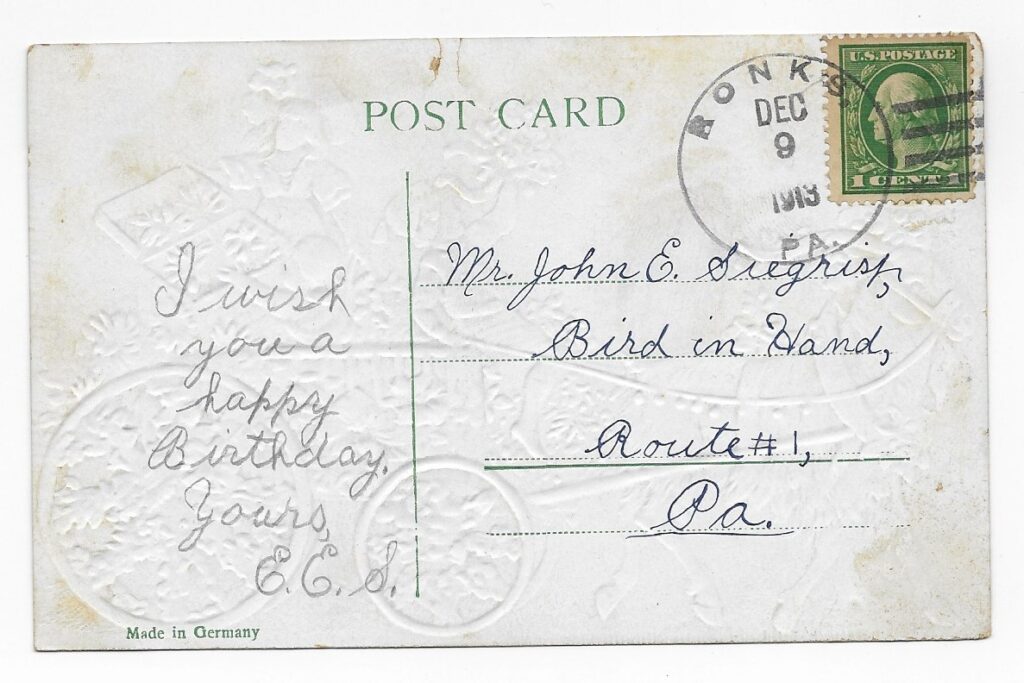 POST CARD
RONKS
DEC
9
1913
PA.
U.S. POSTAGE
1 CENT 1
I wish
you a
happy
Birthday.
Yours,
E. E. S.
Mr. John E. Siegrist,
Bird in Hand,
Route #1,
Pa.
Made in Germany